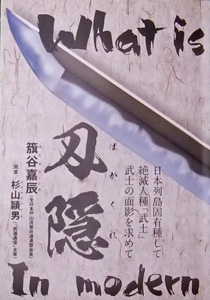 What is
日本列島固有種して
絶滅人種「武士」
武士の面影を求めて
刃隠
はがくれ
籏谷嘉辰
杉山頴男
In modern